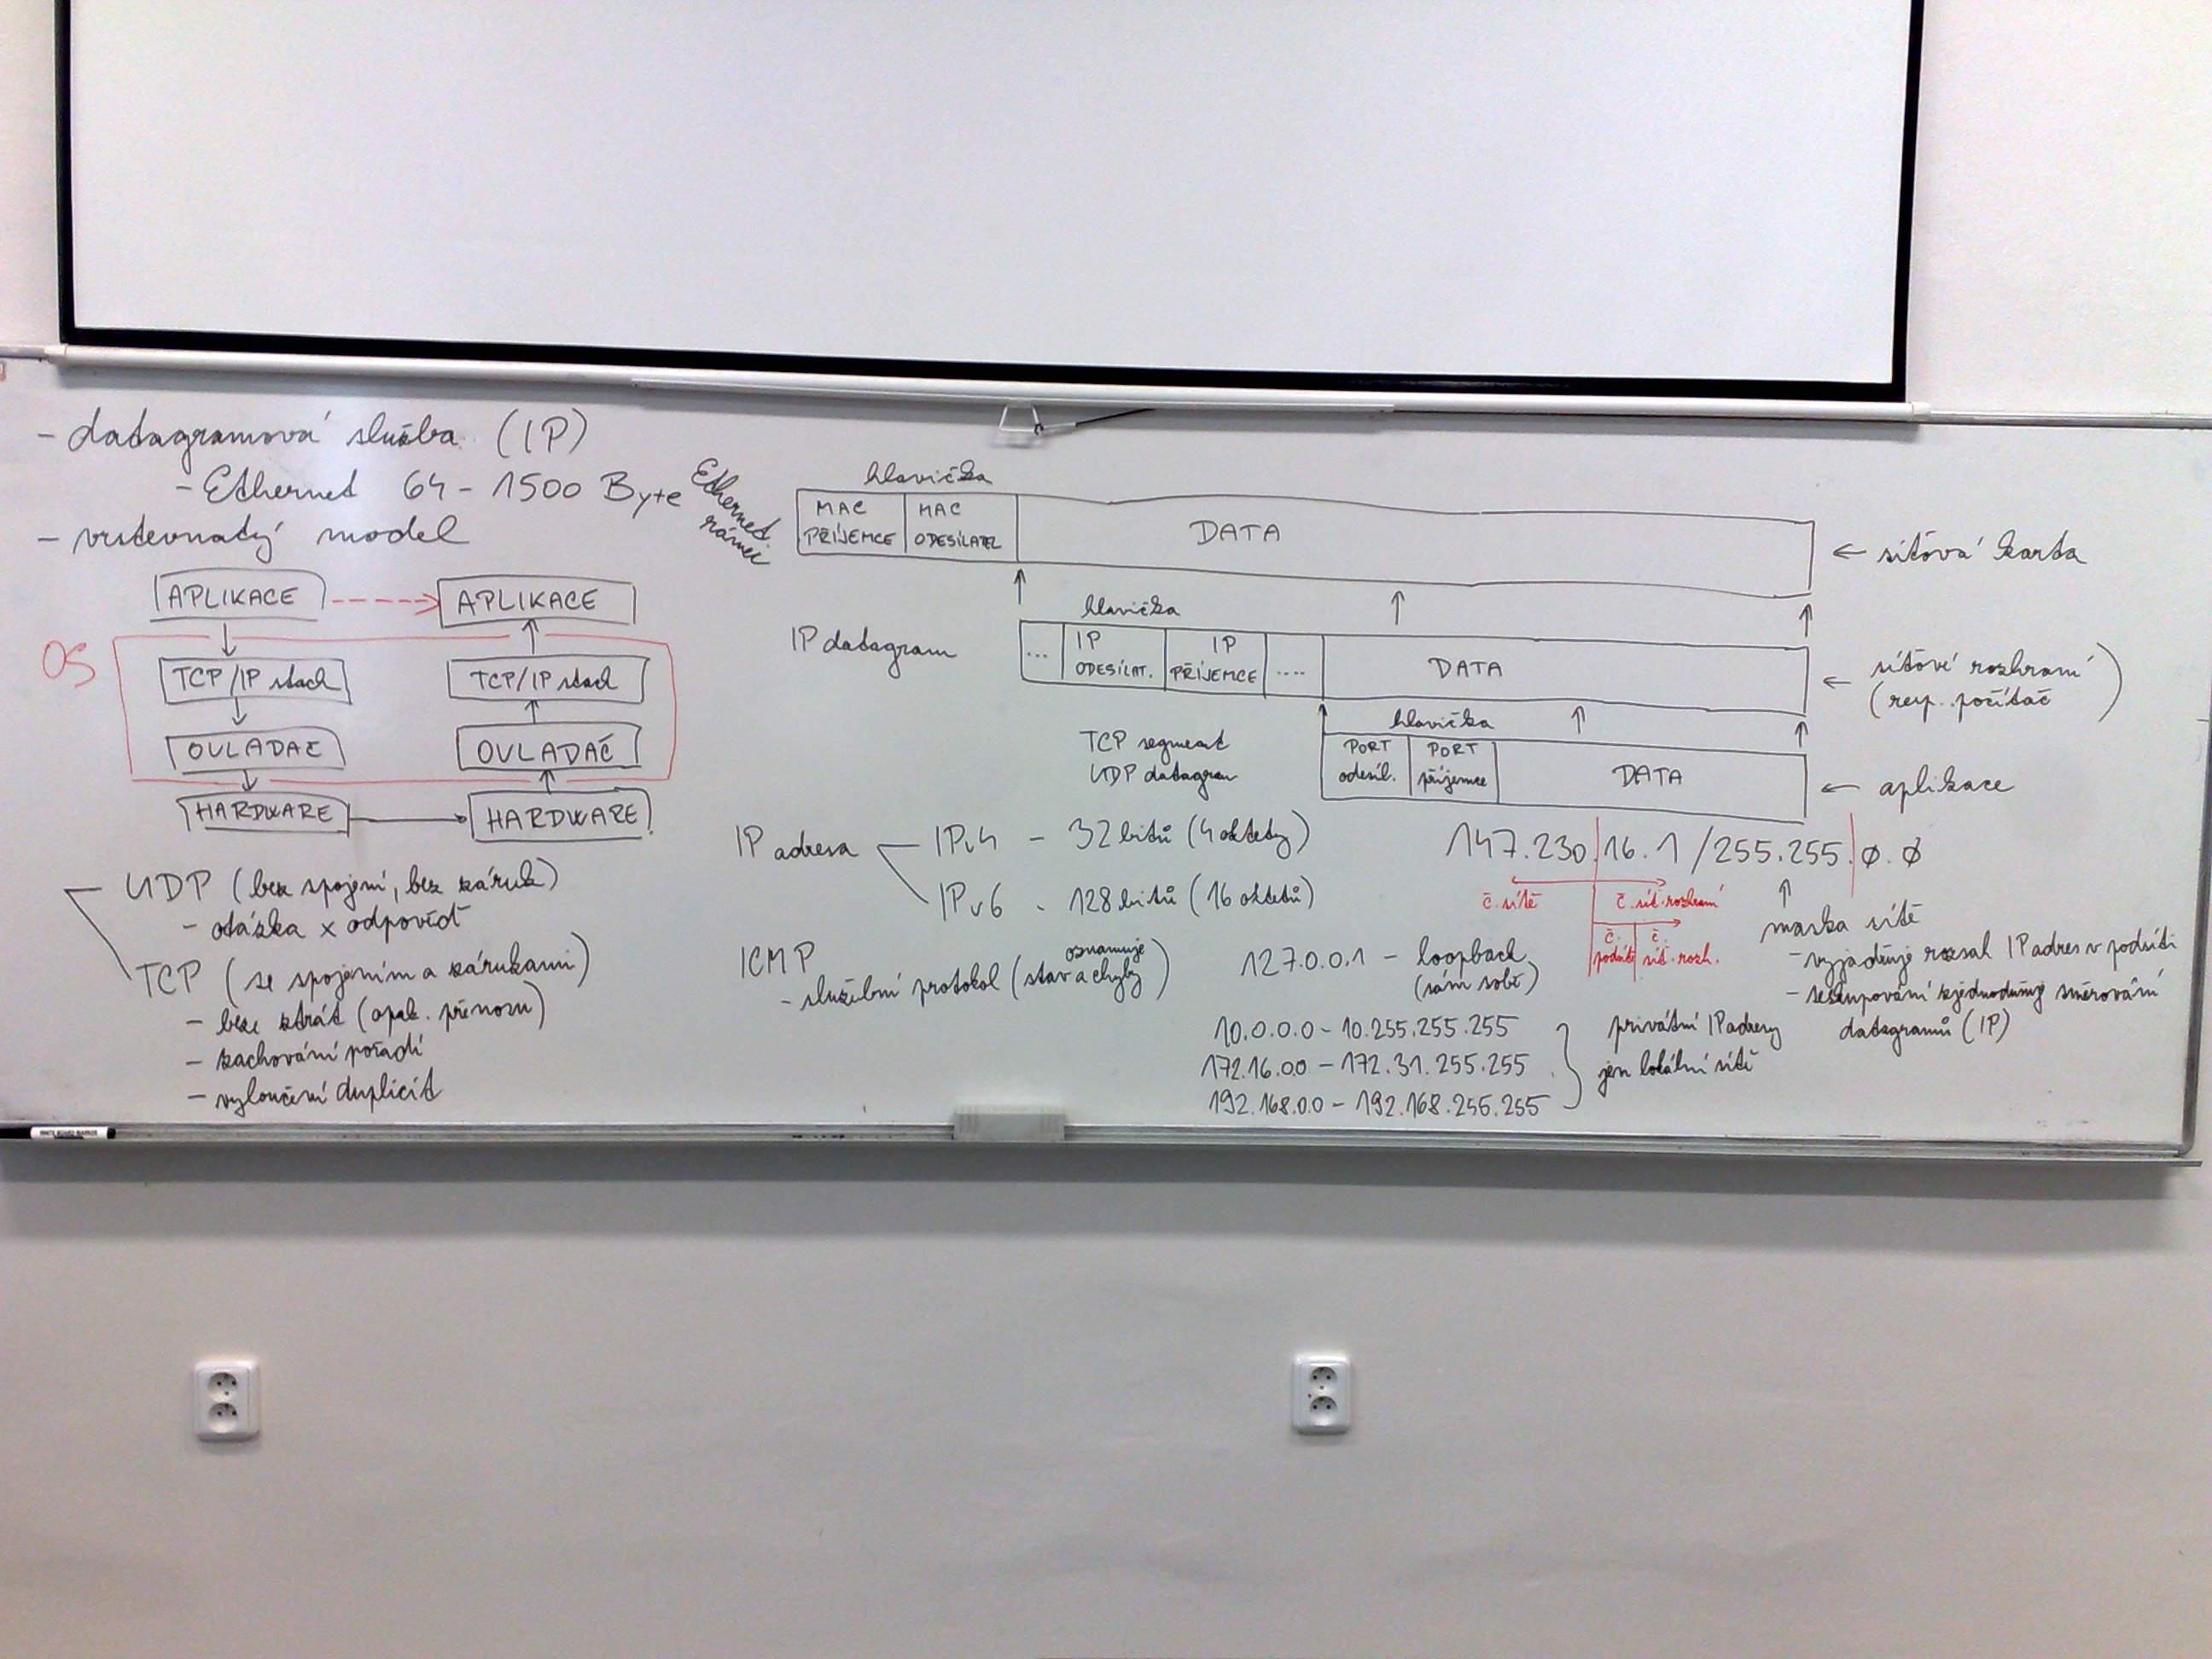 - datagramová služba (IP)
- Ethernet 64 - 1500 Byte
- vrstevnatý model
APLIKACE
APLIKACE
OS
TCP/IP stack
TCP/IP stack
OVLADAČ
OVLADAČ
HARDWARE
HARDWARE
UDP (bez spojení, bez záruk)
- otázka x odpověď
TCP (se spojením a zárukami)
- beze ztrát (opak. přenosu)
- zachování pořadí
- vyloučení duplicit
Ethernet rámec
hlavička
MAC PŘÍJEMCE
MAC ODESÍLATEL
DATA
← síťová karta
IP datagram
hlavička
...
IP ODESÍLAT.
IP PŘÍJEMCE
....
DATA
← síťové rozhraní
(resp. počítač)
TCP segment
UDP datagram
hlavička
PORT odesíl.
PORT příjemce
DATA
← aplikace
IP adresa
IPv4 - 32 bitů (4 oktety)
IPv6 - 128 bitů (16 oktetů)
ICMP
- služební protokol (oznamuje stav a chyby)
147.230.16.1 /255.255.0.0
č. sítě
č. síť. rozhraní
č. podsítě
č. síť. rozh.
maska sítě
- vyjadřuje rozsah IP adres v podsíti
- seskupování zjednodušuje směrování
datagramů (IP)
127.0.0.1 - loopback
(sám sobě)
10.0.0.0 - 10.255.255.255
172.16.0.0 - 172.31.255.255
192.168.0.0 - 192.168.255.255
privátní IP adresy
jen lokální sítě